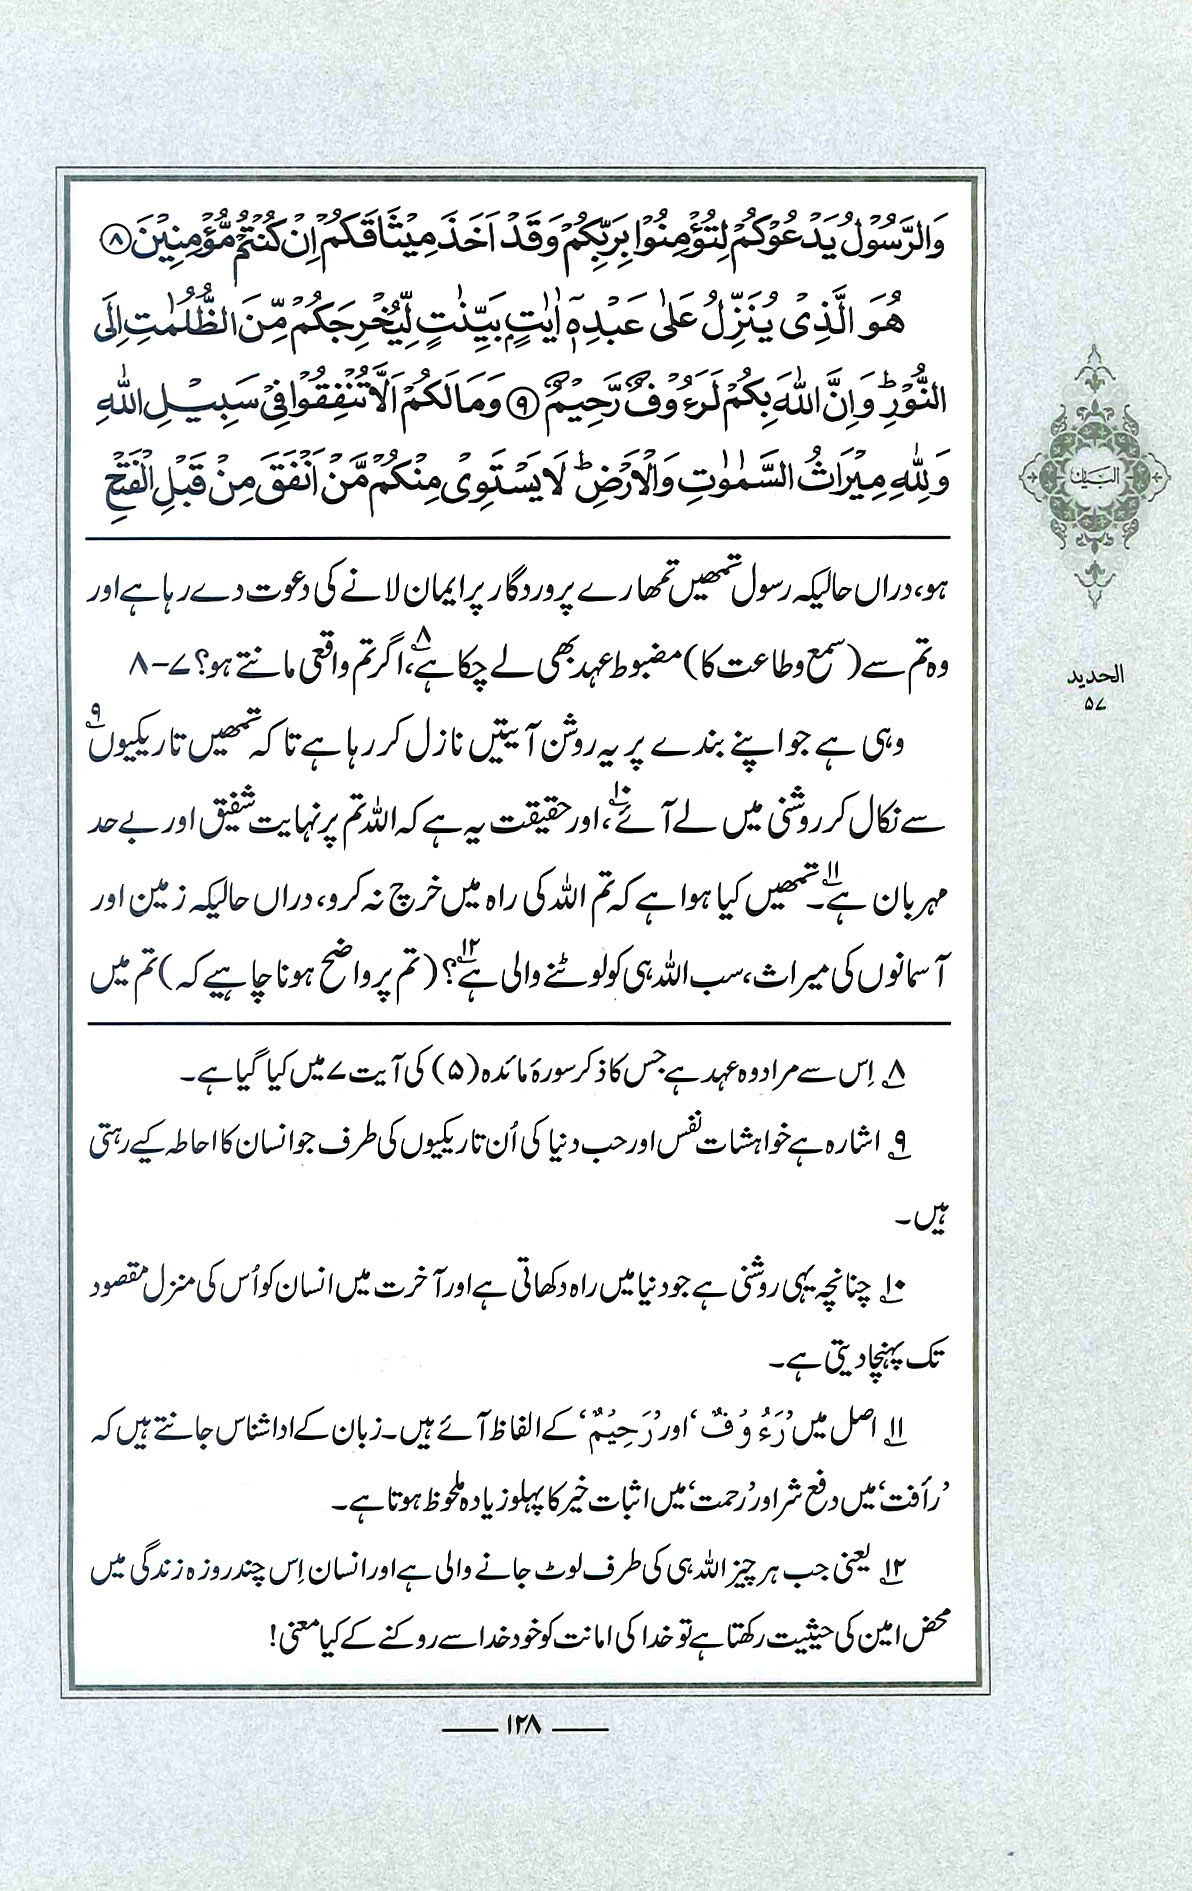 وَالرَّسُوۡلُ يَدۡعُوۡكُمۡ لِتُؤۡمِنُوۡا بِرَبِّكُمۡ وَقَدۡ اَخَذَ مِيۡثَاقَكُمۡ اِنۡ كُنۡتُمۡ مُّؤۡمِنِيۡنَ ﴿۸﴾
هُوَ الَّذِىۡ يُنَزِّلُ عَلٰى عَبۡدِهٖۤ اٰيٰتٍۢ بَيِّنٰتٍ لِّيُخۡرِجَكُمۡ مِّنَ الظُّلُمٰتِ اِلَى
النُّوۡرِؕ وَاِنَّ اللّٰهَ بِكُمۡ لَرَءُوۡفٌ رَّحِيۡمٌ ﴿۹﴾ وَمَا لَكُمۡ اَلَّا تُنۡفِقُوۡا فِىۡ سَبِيۡلِ اللّٰهِ
وَلِلّٰهِ مِيۡرَاثُ السَّمٰوٰتِ وَالۡاَرۡضِؕ لَا يَسۡتَوِىۡ مِنۡكُمۡ مَّنۡ اَنۡفَقَ مِنۡ قَبۡلِ الۡفَتۡحِ
ہو، دراں حالیکہ رسول تمھیں تمھارے پروردگار پر ایمان لانے کی دعوت دے رہا ہے اور
وہ تم سے (سمع و طاعت کا) مضبوط عہد بھی لے چکا ہے۸، اگر تم واقعی مانتے ہو؟ ۷-۸
وہی ہے جو اپنے بندے پر یہ روشن آیتیں نازل کر رہا ہے تاکہ تمھیں تاریکیوں۹
سے نکال کر روشنی میں لے آئے۱۰، اور حقیقت یہ ہے کہ اللہ تم پر نہایت شفیق اور بے حد
مہربان ہے۱۱۔ تمھیں کیا ہوا ہے کہ تم اللہ کی راہ میں خرچ نہ کرو، دراں حالیکہ زمین اور
آسمانوں کی میراث، سب اللہ ہی کو لوٹنے والی ہے۱۲؟ (تم پر واضح ہونا چاہیے کہ) تم میں
۸ اِس سے مراد وہ عہد ہے جس کا ذکر سورۂ مائدہ (۵) کی آیت ۷ میں کیا گیا ہے۔
۹ اشارہ ہے خواہشات نفس اور حب دنیا کی اُن تاریکیوں کی طرف جو انسان کا احاطہ کیے رہتی
ہیں۔
۱۰ چنانچہ یہی روشنی ہے جو دنیا میں راہ دکھاتی ہے اور آخرت میں انسان کو اُس کی منزل مقصود
تک پہنچا دیتی ہے۔
۱۱ اصل میں ’رَءُوۡفٌ‘ اور ’رَحِيۡمٌ‘ کے الفاظ آئے ہیں۔ زبان کے ادا شناس جانتے ہیں کہ
’رأفت‘ میں دفع شر اور ’رحمت‘ میں اثبات خیر کا پہلو زیادہ ملحوظ ہوتا ہے۔
۱۲ یعنی جب ہر چیز اللہ ہی کی طرف لوٹ جانے والی ہے اور انسان اِس چند روزہ زندگی میں
محض امین کی حیثیت رکھتا ہے تو خدا کی امانت کو خود خدا سے روکنے کے کیا معنی!
البیان
الحدید
۵۷
۱۲۸